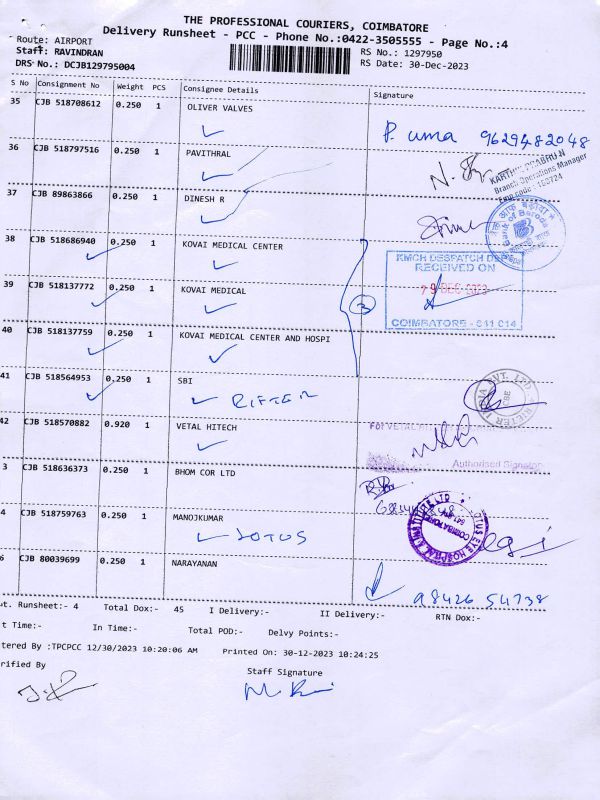 THE PROFESSIONAL COURIERS, COIMBATORE
Delivery Runsheet - PCC - Phone No.:0422-3505555 - Page No.:4
Route: AIRPORT
Staff: RAVINDRAN
DRS No.: DCJB129795004
RS No.: 1297950
RS Date: 30-Dec-2023
S No Consignment No Weight PCS Consignee Details Signature
35 CJB 518708612 0.250 1 OLIVER VALVES
P. uma 9629482048
36 CJB 518797516 0.250 1 PAVITHRAL
Branch Operations Manager
37 CJB 89863866 0.250 1 DINESH R
Bank of Baroda
38 CJB 518686940 0.250 1 KOVAI MEDICAL CENTER
KMCH DESPATCH DEPT
RECEIVED ON
39 CJB 518137772 0.250 1 KOVAI MEDICAL
3
COIMBATORE - 641 014
40 CJB 518137759 0.250 1 KOVAI MEDICAL CENTER AND HOSPI
41 CJB 518564953 0.250 1 SBI
RIETER
42 CJB 518570882 0.920 1 VETAL HITECH
For VETAL
Authorised Signator
3 CJB 518636373 0.250 1 BHOM COR LTD
4 CJB 518759763 0.250 1 MANOJKUMAR
LOTUS
6 CJB 80039699 0.250 1 NARAYANAN
98426 54738
ut. Runsheet:- 4 Total Dox:- 45 I Delivery:- II Delivery:- RTN Dox:-
t Time:- In Time:- Total POD:- Delvy Points:-
tered By :TPCPCC 12/30/2023 10:20:06 AM Printed On: 30-12-2023 10:24:25
rified By
Staff Signature